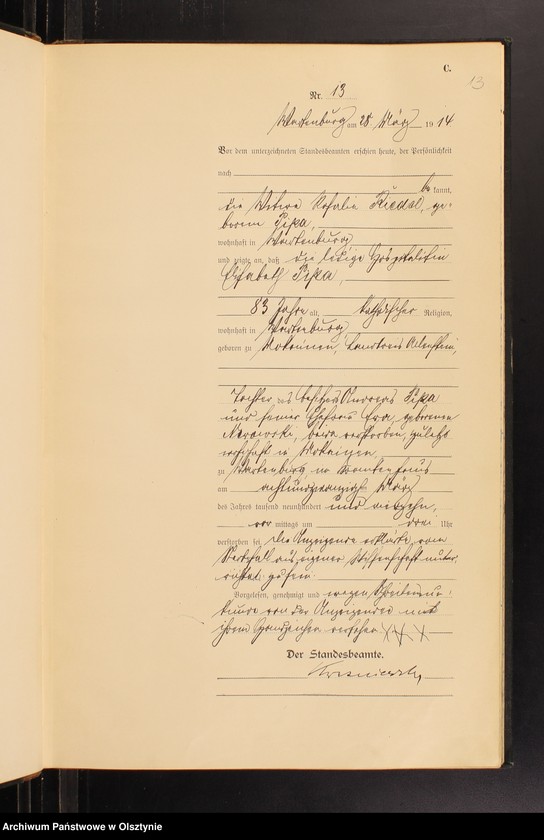 C.
13
Nr. 13
Wartenburg am 28. März 1914
Vor dem unterzeichneten Standesbeamten erschien heute, der Persönlichkeit
nach
be kannt,
die Witwe Rosalie Riedel, ge-
borene Pipa,
wohnhaft in Wartenburg
und zeigte an, daß die ledige Hospitalitin
Elisabeth Pipa,
83 Jahre alt, katholischer Religion,
wohnhaft in Wartenburg
geboren zu Mokainen, Landkreis Allenstein,
Tochter des Besitzers Andreas Pipa
und seiner Ehefrau Eva, geborenen
beide verstorben, zuletzt
wohnhaft in Mokainen,
zu Wartenburg im Krankenhaus
am achtundzwanzigsten März
des Jahres tausend neunhundert und vierzehn,
vor mittags um drei Uhr
verstorben sei. Die Anzeigende erklärte, vom
Sterbfall aus eigener Wissenschaft unter-
richtet zu sein.
Vorgelesen, genehmigt und wegen Schreibensun-
kunde von der Anzeigenden mit
ihrem Handzeichen versehen XXX
Der Standesbeamte.
Archiwum Państwowe w Olsztynie